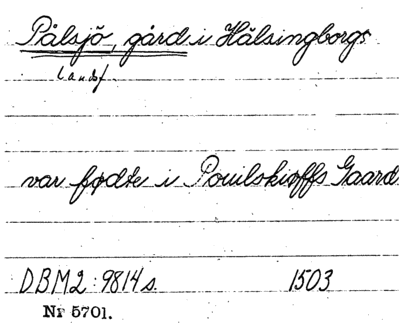 Pålsjö, gård i Hälsingborgs
landsf.
var fødte i Pouilskiøffs Gaard
DBM2: 9814 s. 1503
Nr 5701.